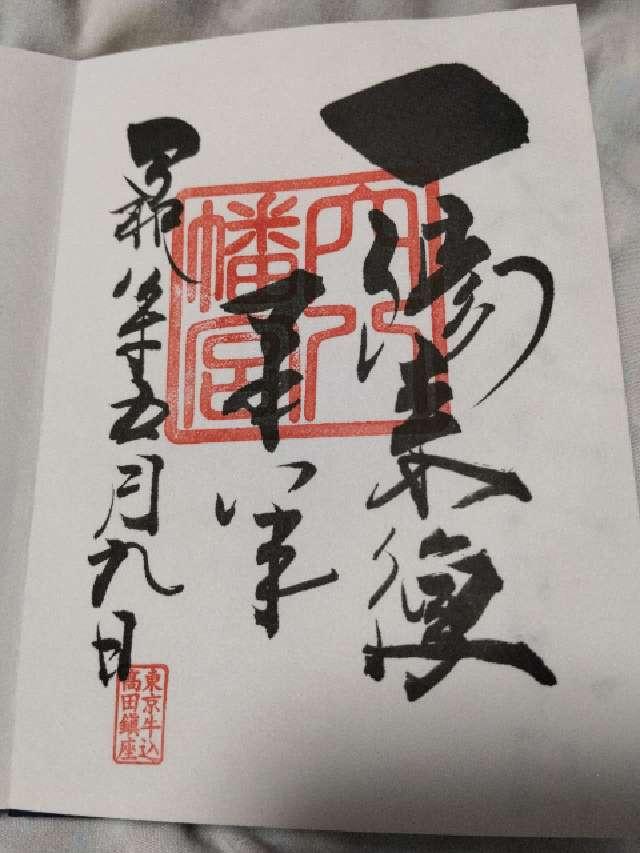 一陽来復
穴八
幡宮
令和八年五月九日
東京牛込
高田鎮座